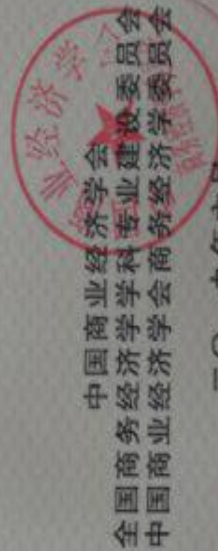 中国商业经济学会
全国商务经济学学科专业建设委员会
中国商业经济学会商务经济学委员会